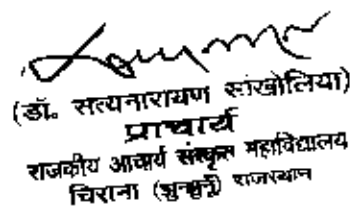 (डॉ. सत्यनारायण सांखोलिया)
प्राचार्य
राजकीय आचार्य संस्कृत महाविद्यालय
चिराना (झुन्झुनूं) राजस्थान